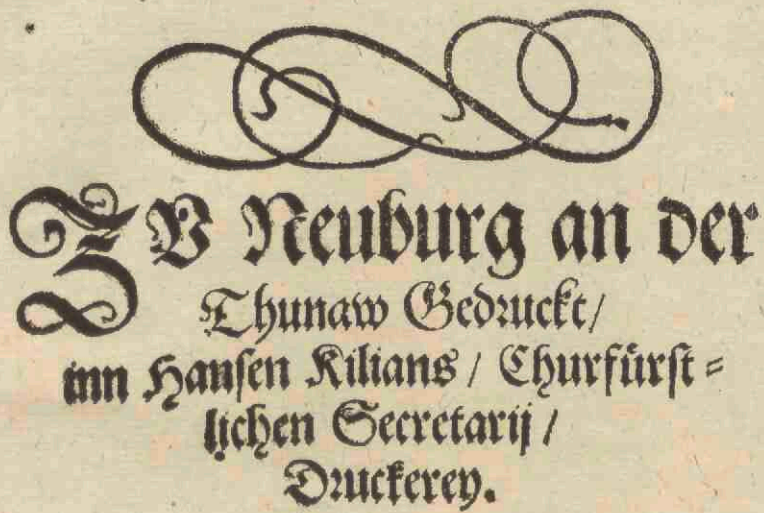 ZV Neuburg an der
Thunaw Gedruckt/
inn Hansen Kilians / Churfürst=
lichen Secretarij /
Druckerey.